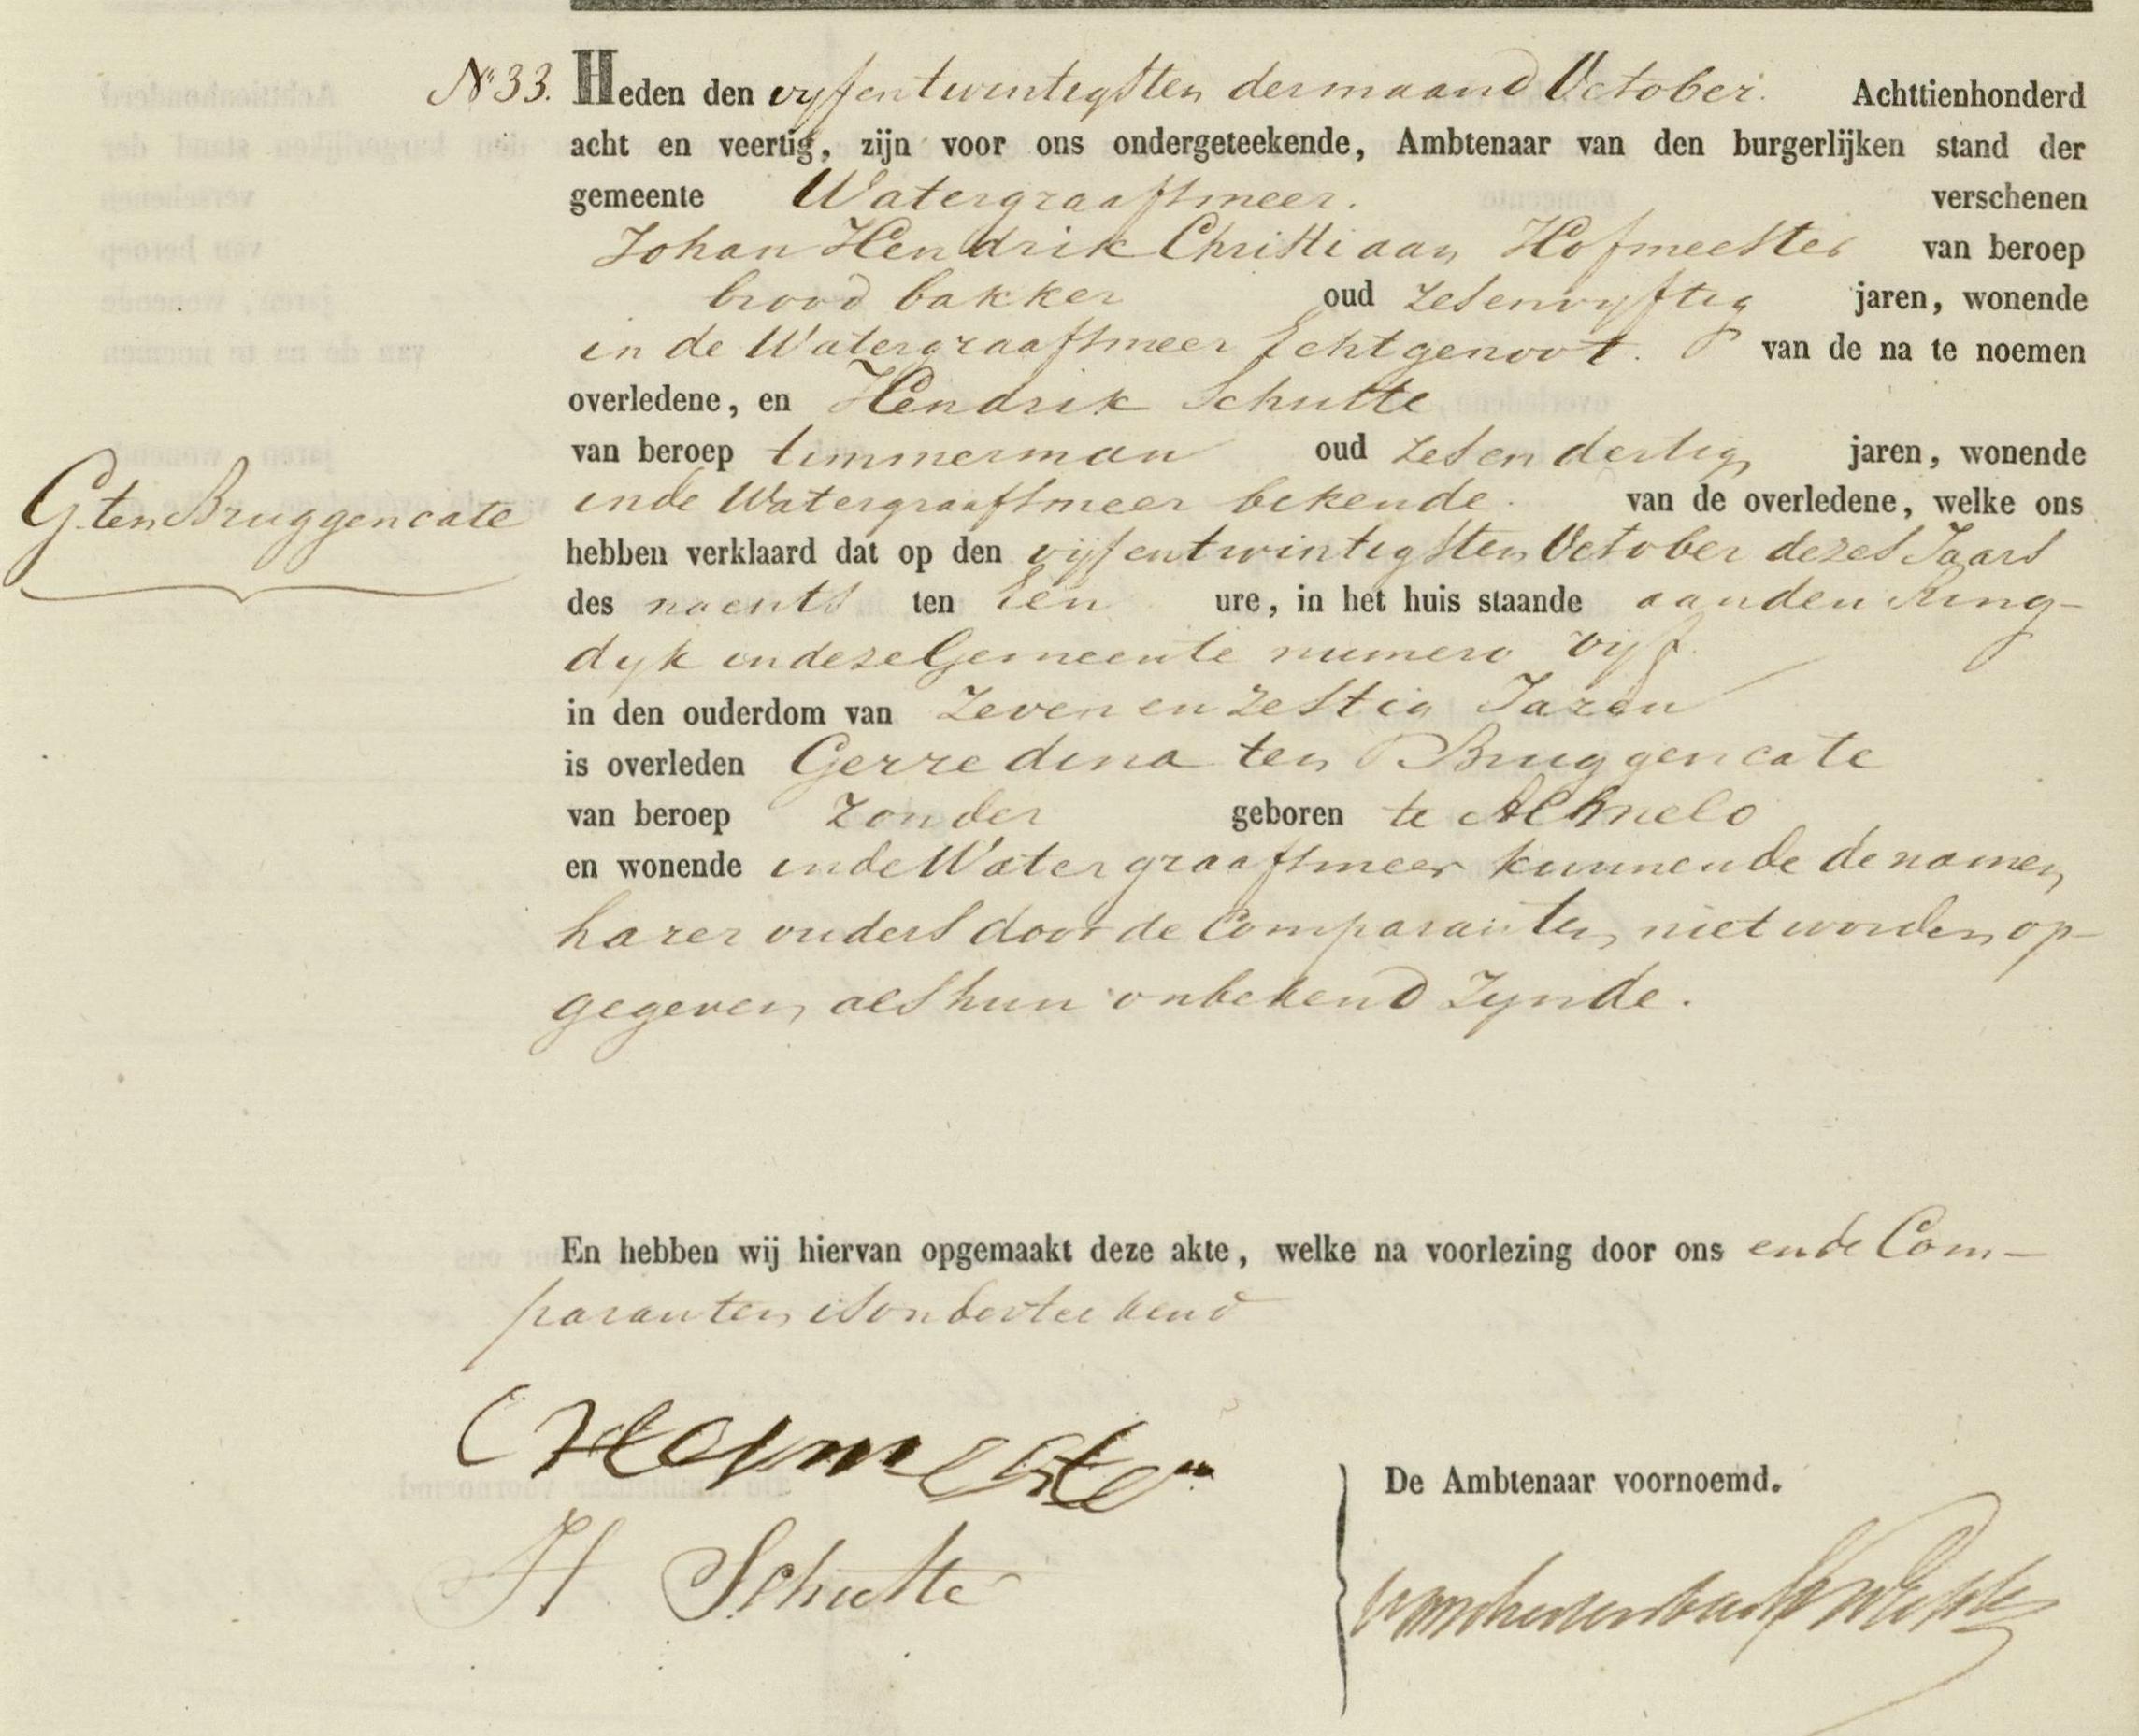 N° 33. Heden den vyfentwintigsten der maand October. Achttienhonderd
acht en veertig, zijn voor ons ondergeteekende, Ambtenaar van den burgerlijken stand der
gemeente Watergraafsmeer. verschenen
Johan Hendrik Christiaan Hofmeester van beroep
brood bakker oud zesenvyftig jaren, wonende
in de Watergraafsmeer Echtgenoot. van de na te noemen
overledene, en Hendrik Schutte
van beroep timmerman oud zesendertig jaren, wonende
G. ten Bruggencate
in de Watergraafsmeer bekende. van de overledene, welke ons
hebben verklaard dat op den vijfentwintigsten October dezes Jaars
des nachts ten Een ure, in het huis staande aan den Ring-
dyk in deze Gemeente numero vijf.
in den ouderdom van Zeven en zestig Jaren
is overleden Gerredina ten Bruggencate
van beroep Zonder geboren te Almelo
en wonende in de Watergraafsmeer kunnende de namen
harer ouders door de Comparanten niet worden op-
gegeven als hun onbekend Zynde.
En hebben wij hiervan opgemaakt deze akte, welke na voorlezing door ons en de Com-
paranten is onderteekend
Hofmeester
H Schutte
De Ambtenaar voornoemd.